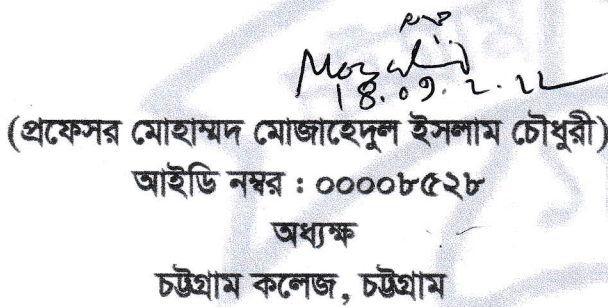 18.09.2.22
(প্রফেসর মোহাম্মদ মোজাহেদুল ইসলাম চৌধুরী)
আইডি নম্বর : ০০০০৮৫২৮
অধ্যক্ষ
চট্টগ্রাম কলেজ, চট্টগ্রাম